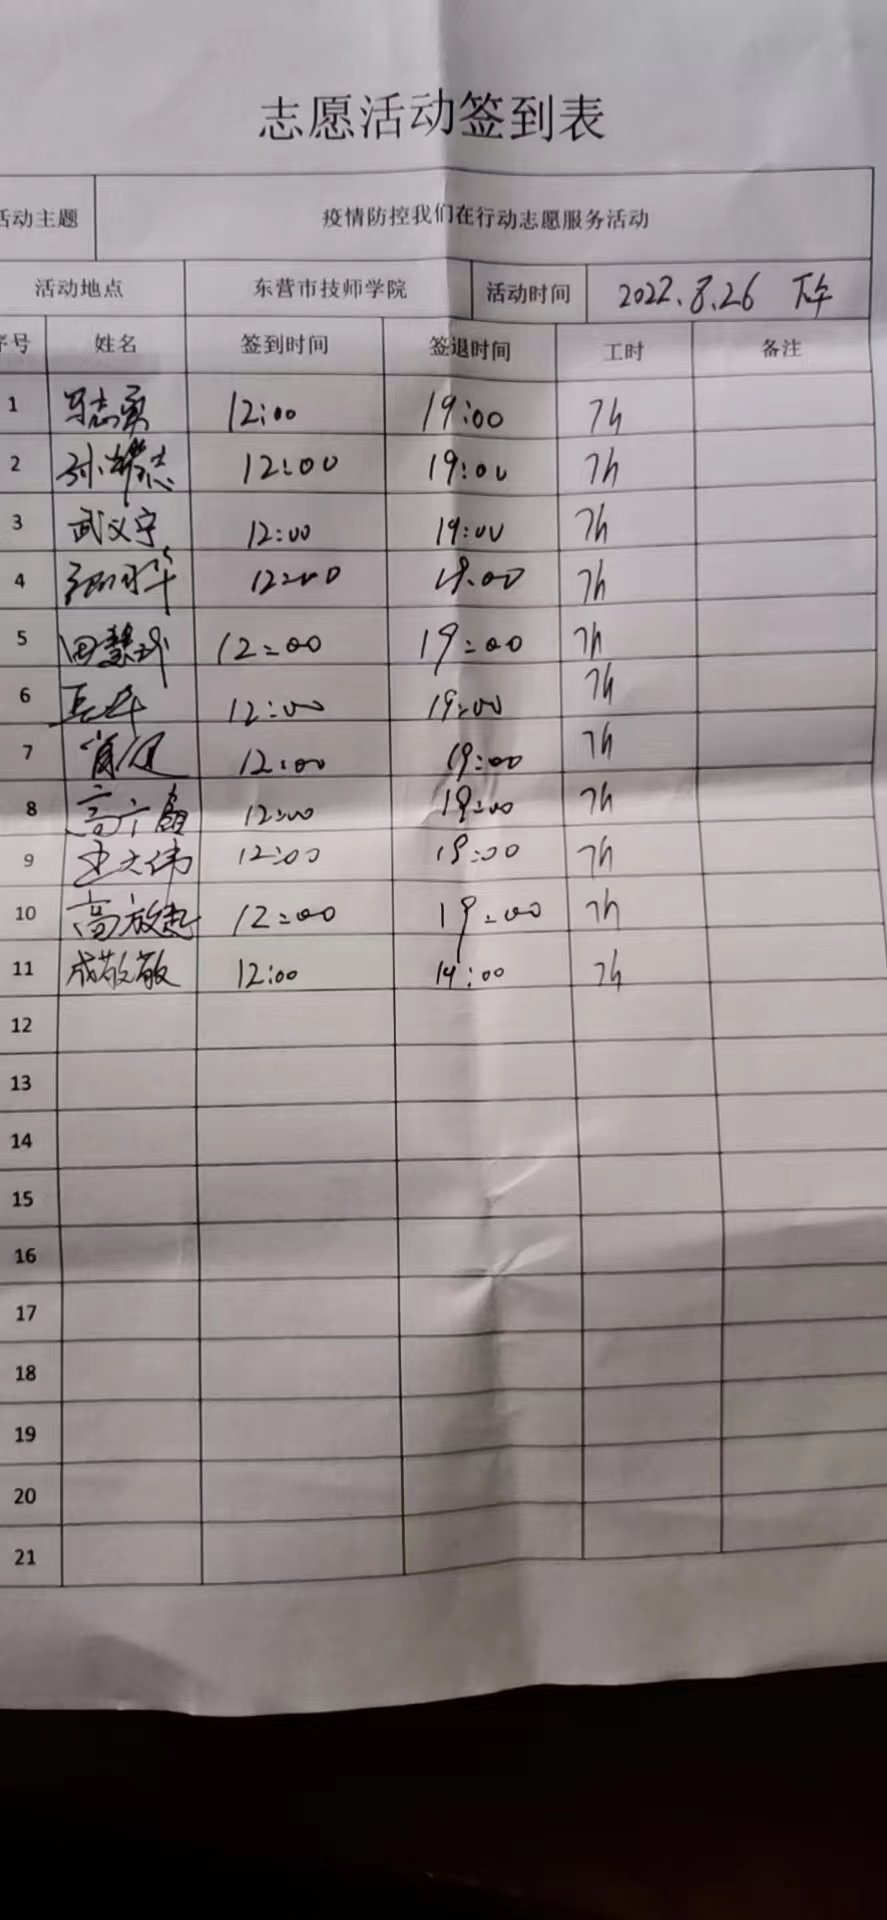 志愿活动签到表
活动主题 疫情防控我们在行动志愿服务活动
活动地点 东营市技师学院 活动时间 2022.8.26 下午
序号 姓名 签到时间 签退时间 工时 备注
1 马志勇 12:00 19:00 7h
2 12:00 19:00 7h
3 武义宁 12:00 19:00 7h
4 12:00 19:00 7h
5 田慧 12:00 19:00 7h
6 12:00 19:00 7h
7 12:00 19:00 7h
8 高 12:00 19:00 7h
9 王文伟 12:00 19:00 7h
10 高放 12:00 19:00 7h
11 成敬敏 12:00 19:00 7h
12
13
14
15
16
17
18
19
20
21